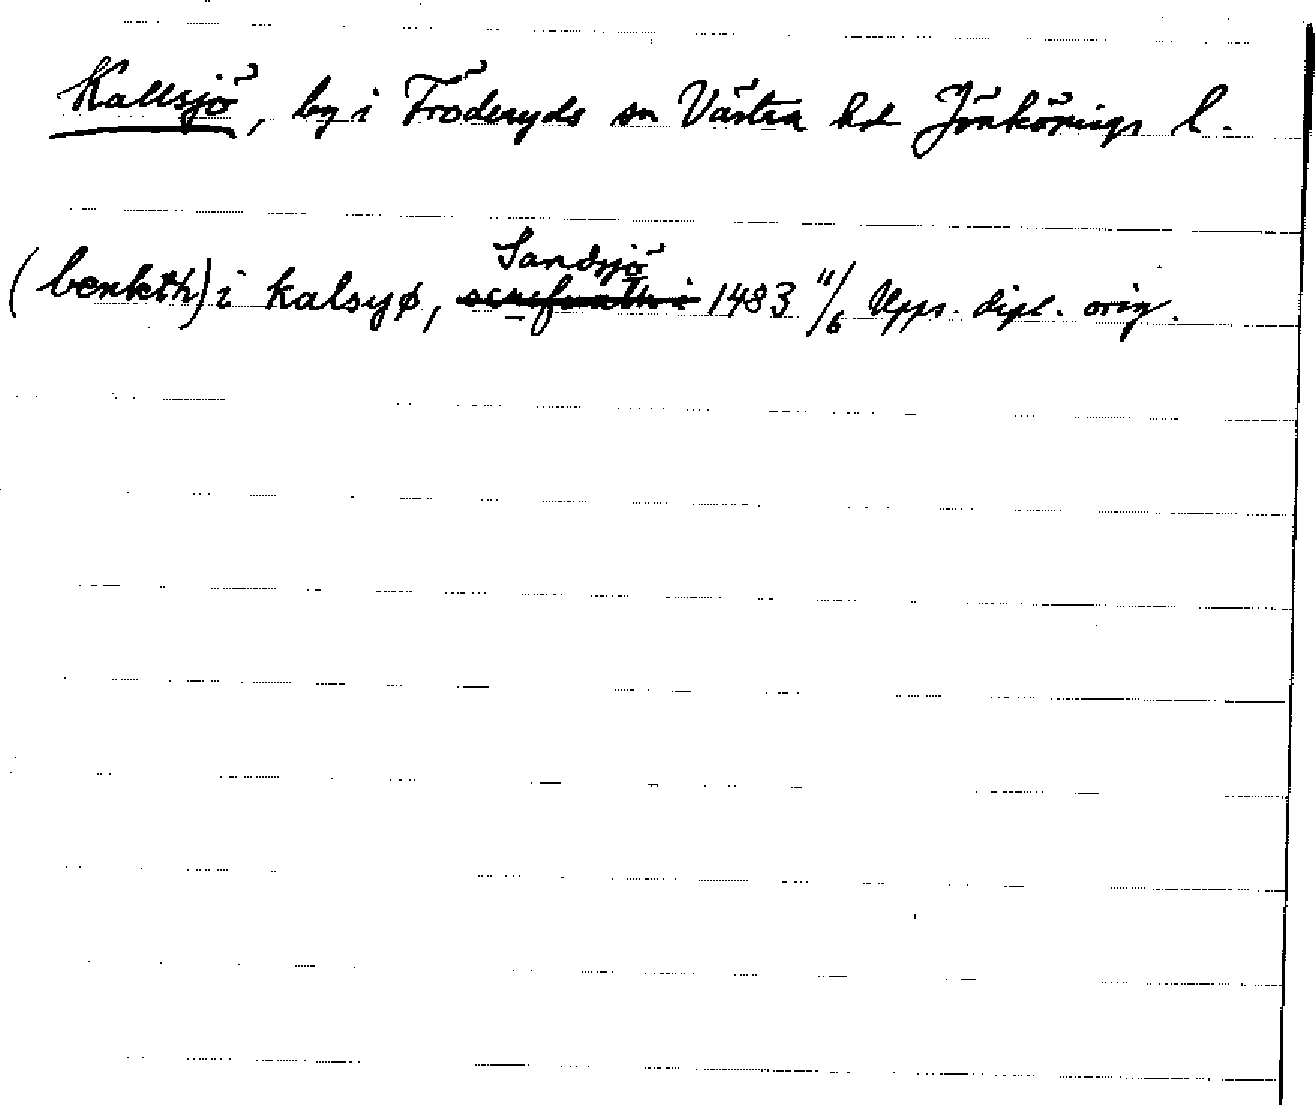 Kallsjö, by i Fröderyds sn Västra hd Jönköpings l.
Sandsjö
(benkth) i kalsyø, 1483 11/6 Upps. dipl. orig.